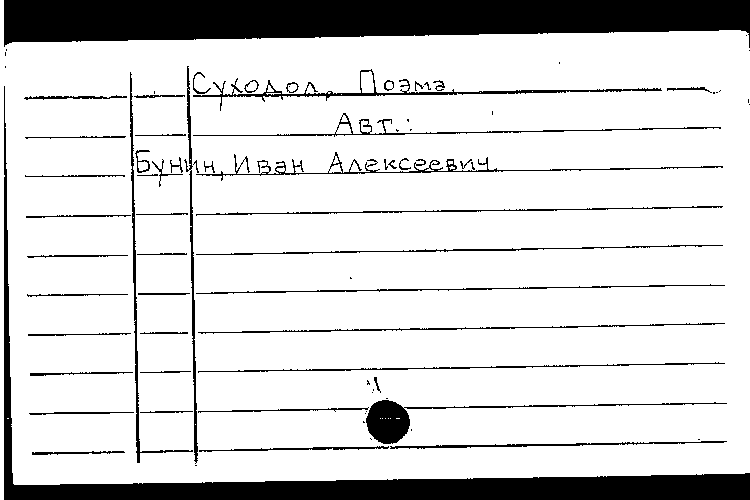 Суходол, Поэма.
Авт.:
Бунин, Иван Алексеевич